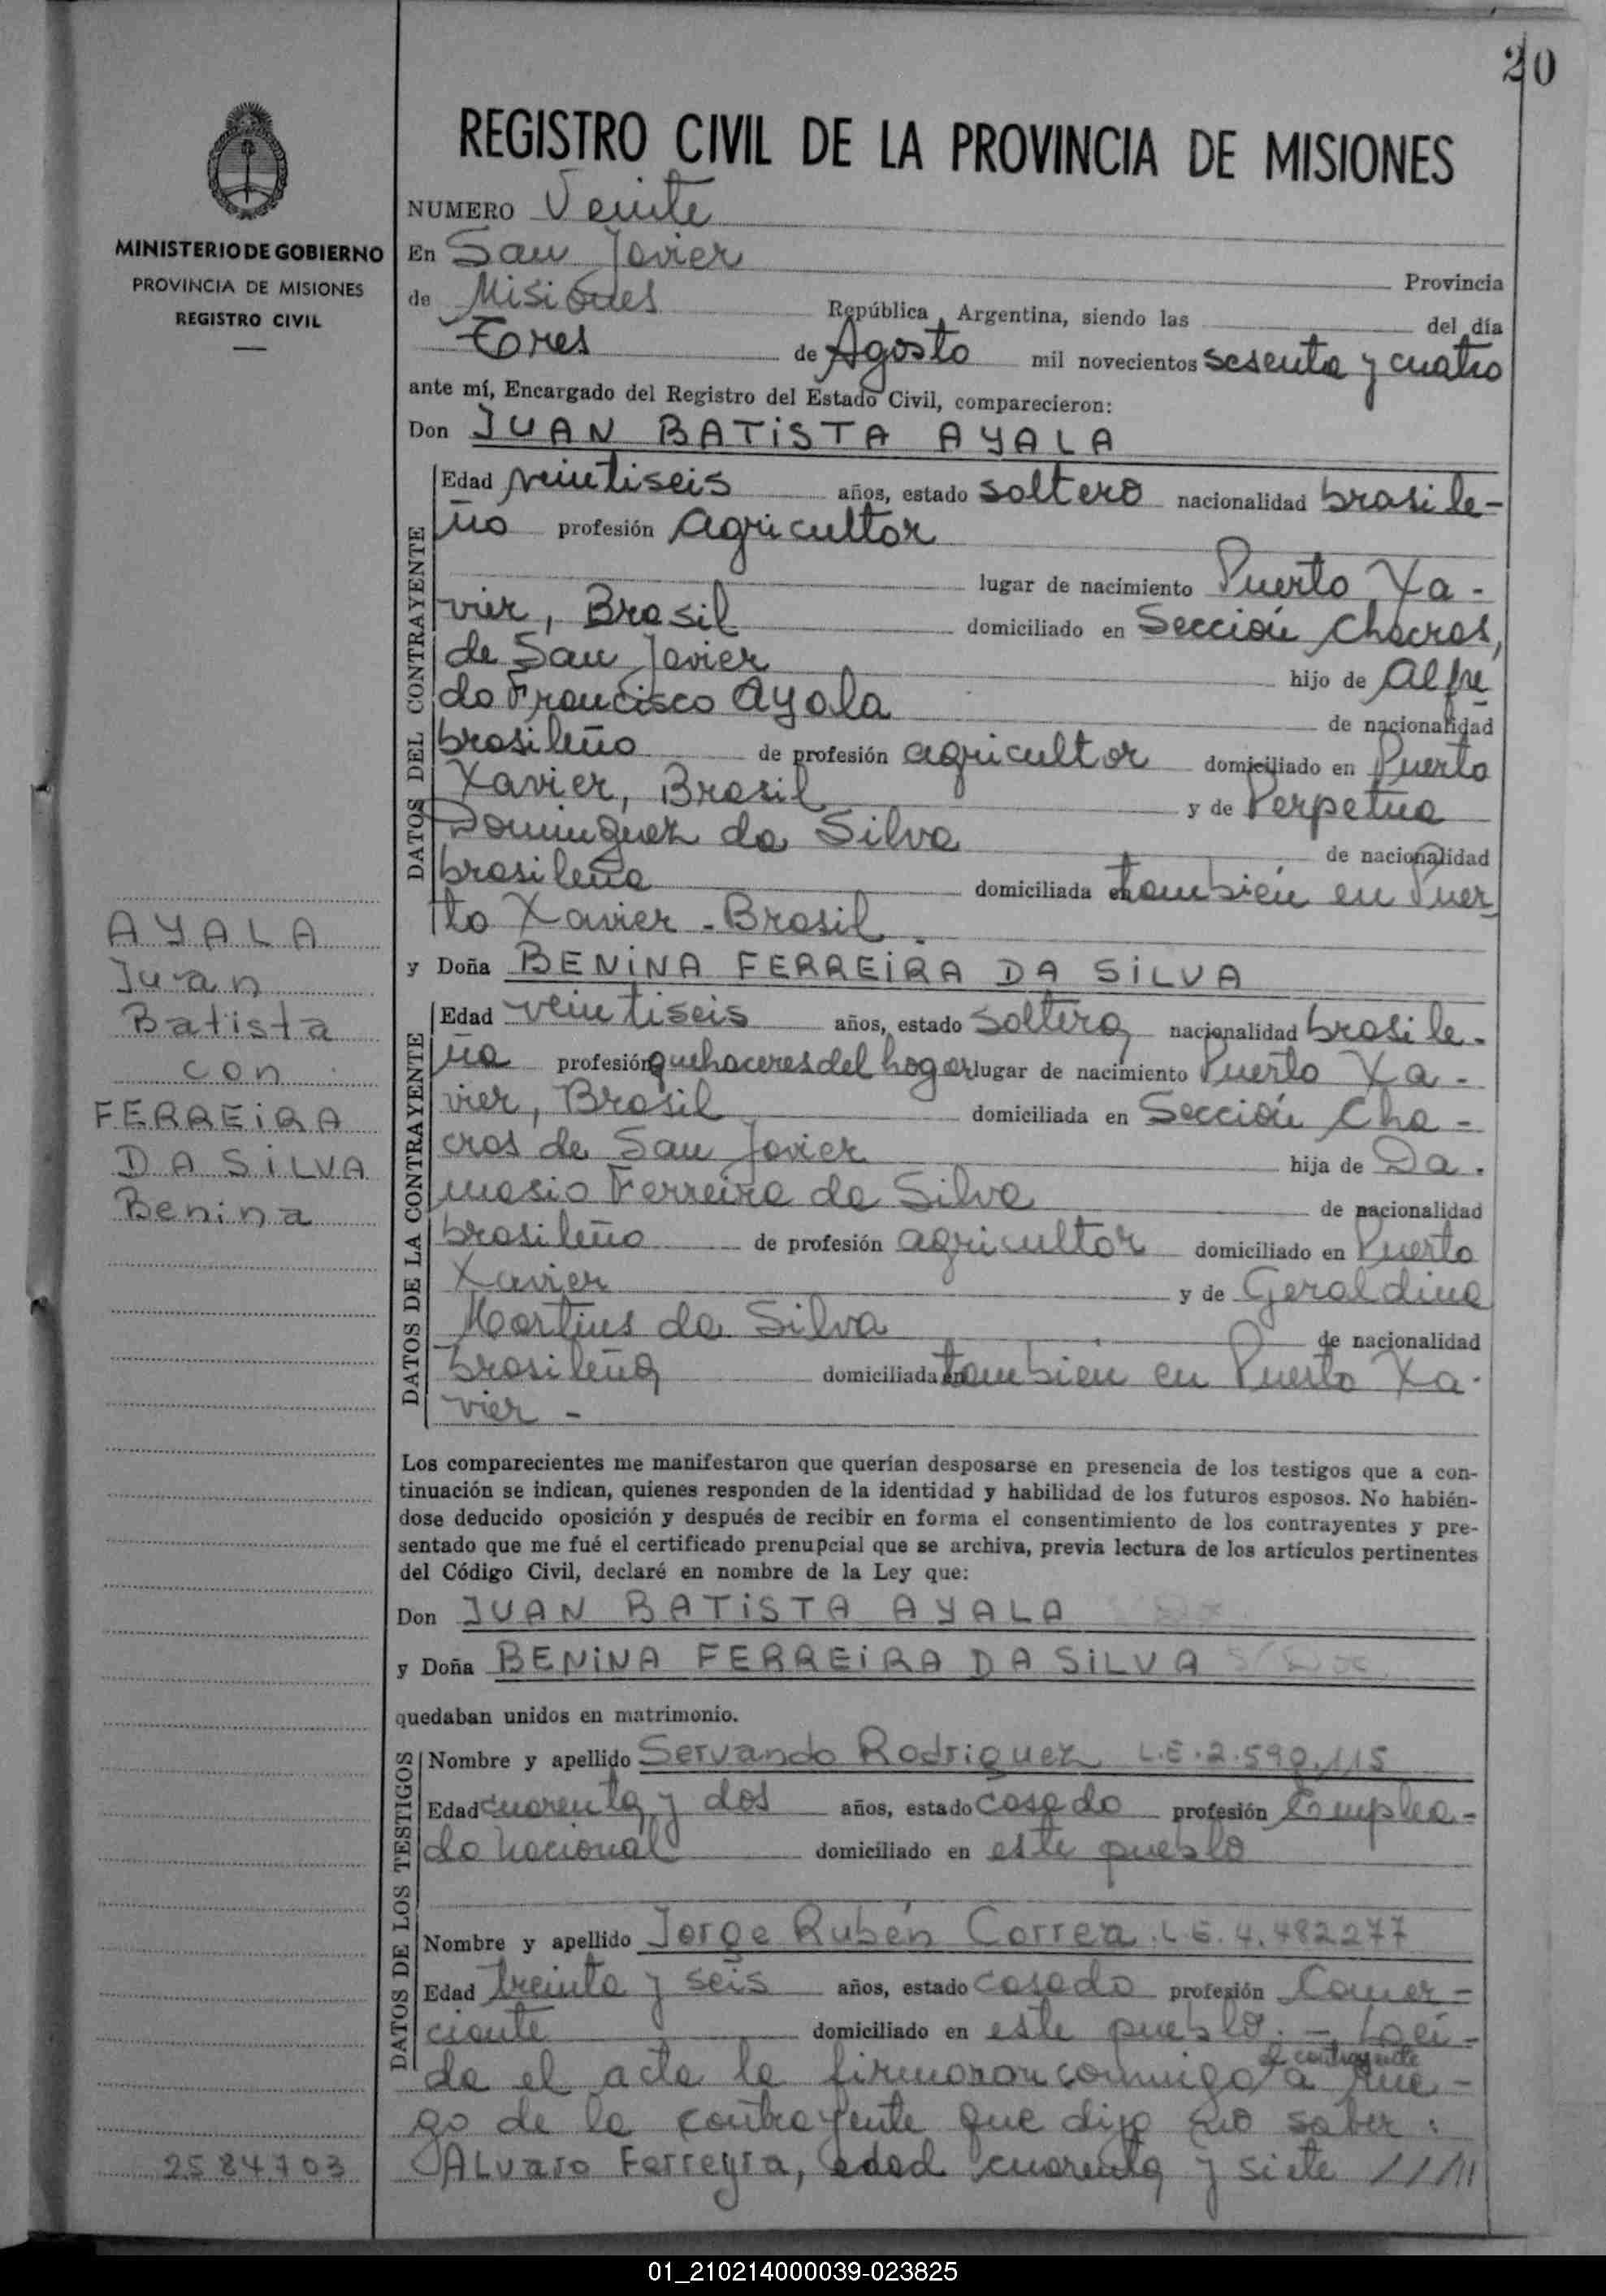 20
REGISTRO CIVIL DE LA PROVINCIA DE MISIONES
MINISTERIO DE GOBIERNO
PROVINCIA DE MISIONES
REGISTRO CIVIL
NUMERO Veinte
En San Javier Provincia
de Misiones República Argentina, siendo las del día
Tres de Agosto mil novecientos sesenta y cuatro
ante mí, Encargado del Registro del Estado Civil, comparecieron:
Don JUAN BATISTA AYALA
DATOS DEL CONTRAYENTE
Edad veintiseis años, estado soltero nacionalidad brasile-
ño profesión agricultor
lugar de nacimiento Puerto Xa-
vier, Brasil domiciliado en Sección Chacras,
de San Javier hijo de Alfre
do Francisco Ayala de nacionalidad
brasileño de profesión agricultor domiciliado en Puerto
Xavier, Brasil y de Perpetua
Dominguez da Silva de nacionalidad
brasileña domiciliada en tambien en Puer
to Xavier - Brasil.
y Doña BENINA FERREIRA DA SILVA
DATOS DE LA CONTRAYENTE
Edad veintiseis años, estado soltera nacionalidad brasile-
ña profesión quehaceres del hogar lugar de nacimiento Puerto Xa-
vier, Brasil domiciliada en Sección Cha-
cras de San Javier hija de Da-
masio Ferreira da Silva de nacionalidad
brasileño de profesión agricultor domiciliado en Puerto
Xavier y de Geraldina
Martins da Silva de nacionalidad
brasileña domiciliada en tambien en Puerto Xa-
vier -
Los comparecientes me manifestaron que querían desposarse en presencia de los testigos que a con-
tinuación se indican, quienes responden de la identidad y habilidad de los futuros esposos. No habién-
dose deducido oposición y después de recibir en forma el consentimiento de los contrayentes y pre-
sentado que me fué el certificado prenupcial que se archiva, previa lectura de los artículos pertinentes
del Código Civil, declaré en nombre de la Ley que:
Don JUAN BATISTA AYALA
y Doña BENINA FERREIRA DA SILVA
quedaban unidos en matrimonio.
DATOS DE LOS TESTIGOS
Nombre y apellido Servando Rodriguez L.E.2.590.115
Edad cuarenta y dos años, estado casado profesión Emplea-
do nacional domiciliado en este pueblo
Nombre y apellido Jorge Rubén Correa. L.E. 4.482277
Edad treinta y seis años, estado casado profesión Comer-
ciante domiciliado en este pueblo. - Leí-
el contrayente
da el acta la firmaron conmigo a rue-
go de la contrayente que dijo no saber:
Alvaro Ferreyra, edad cuarenta y siete /////
AYALA
Juan
Batista
con
FERREIRA
DA SILVA
Benina
2584703
01_210214000039-023825